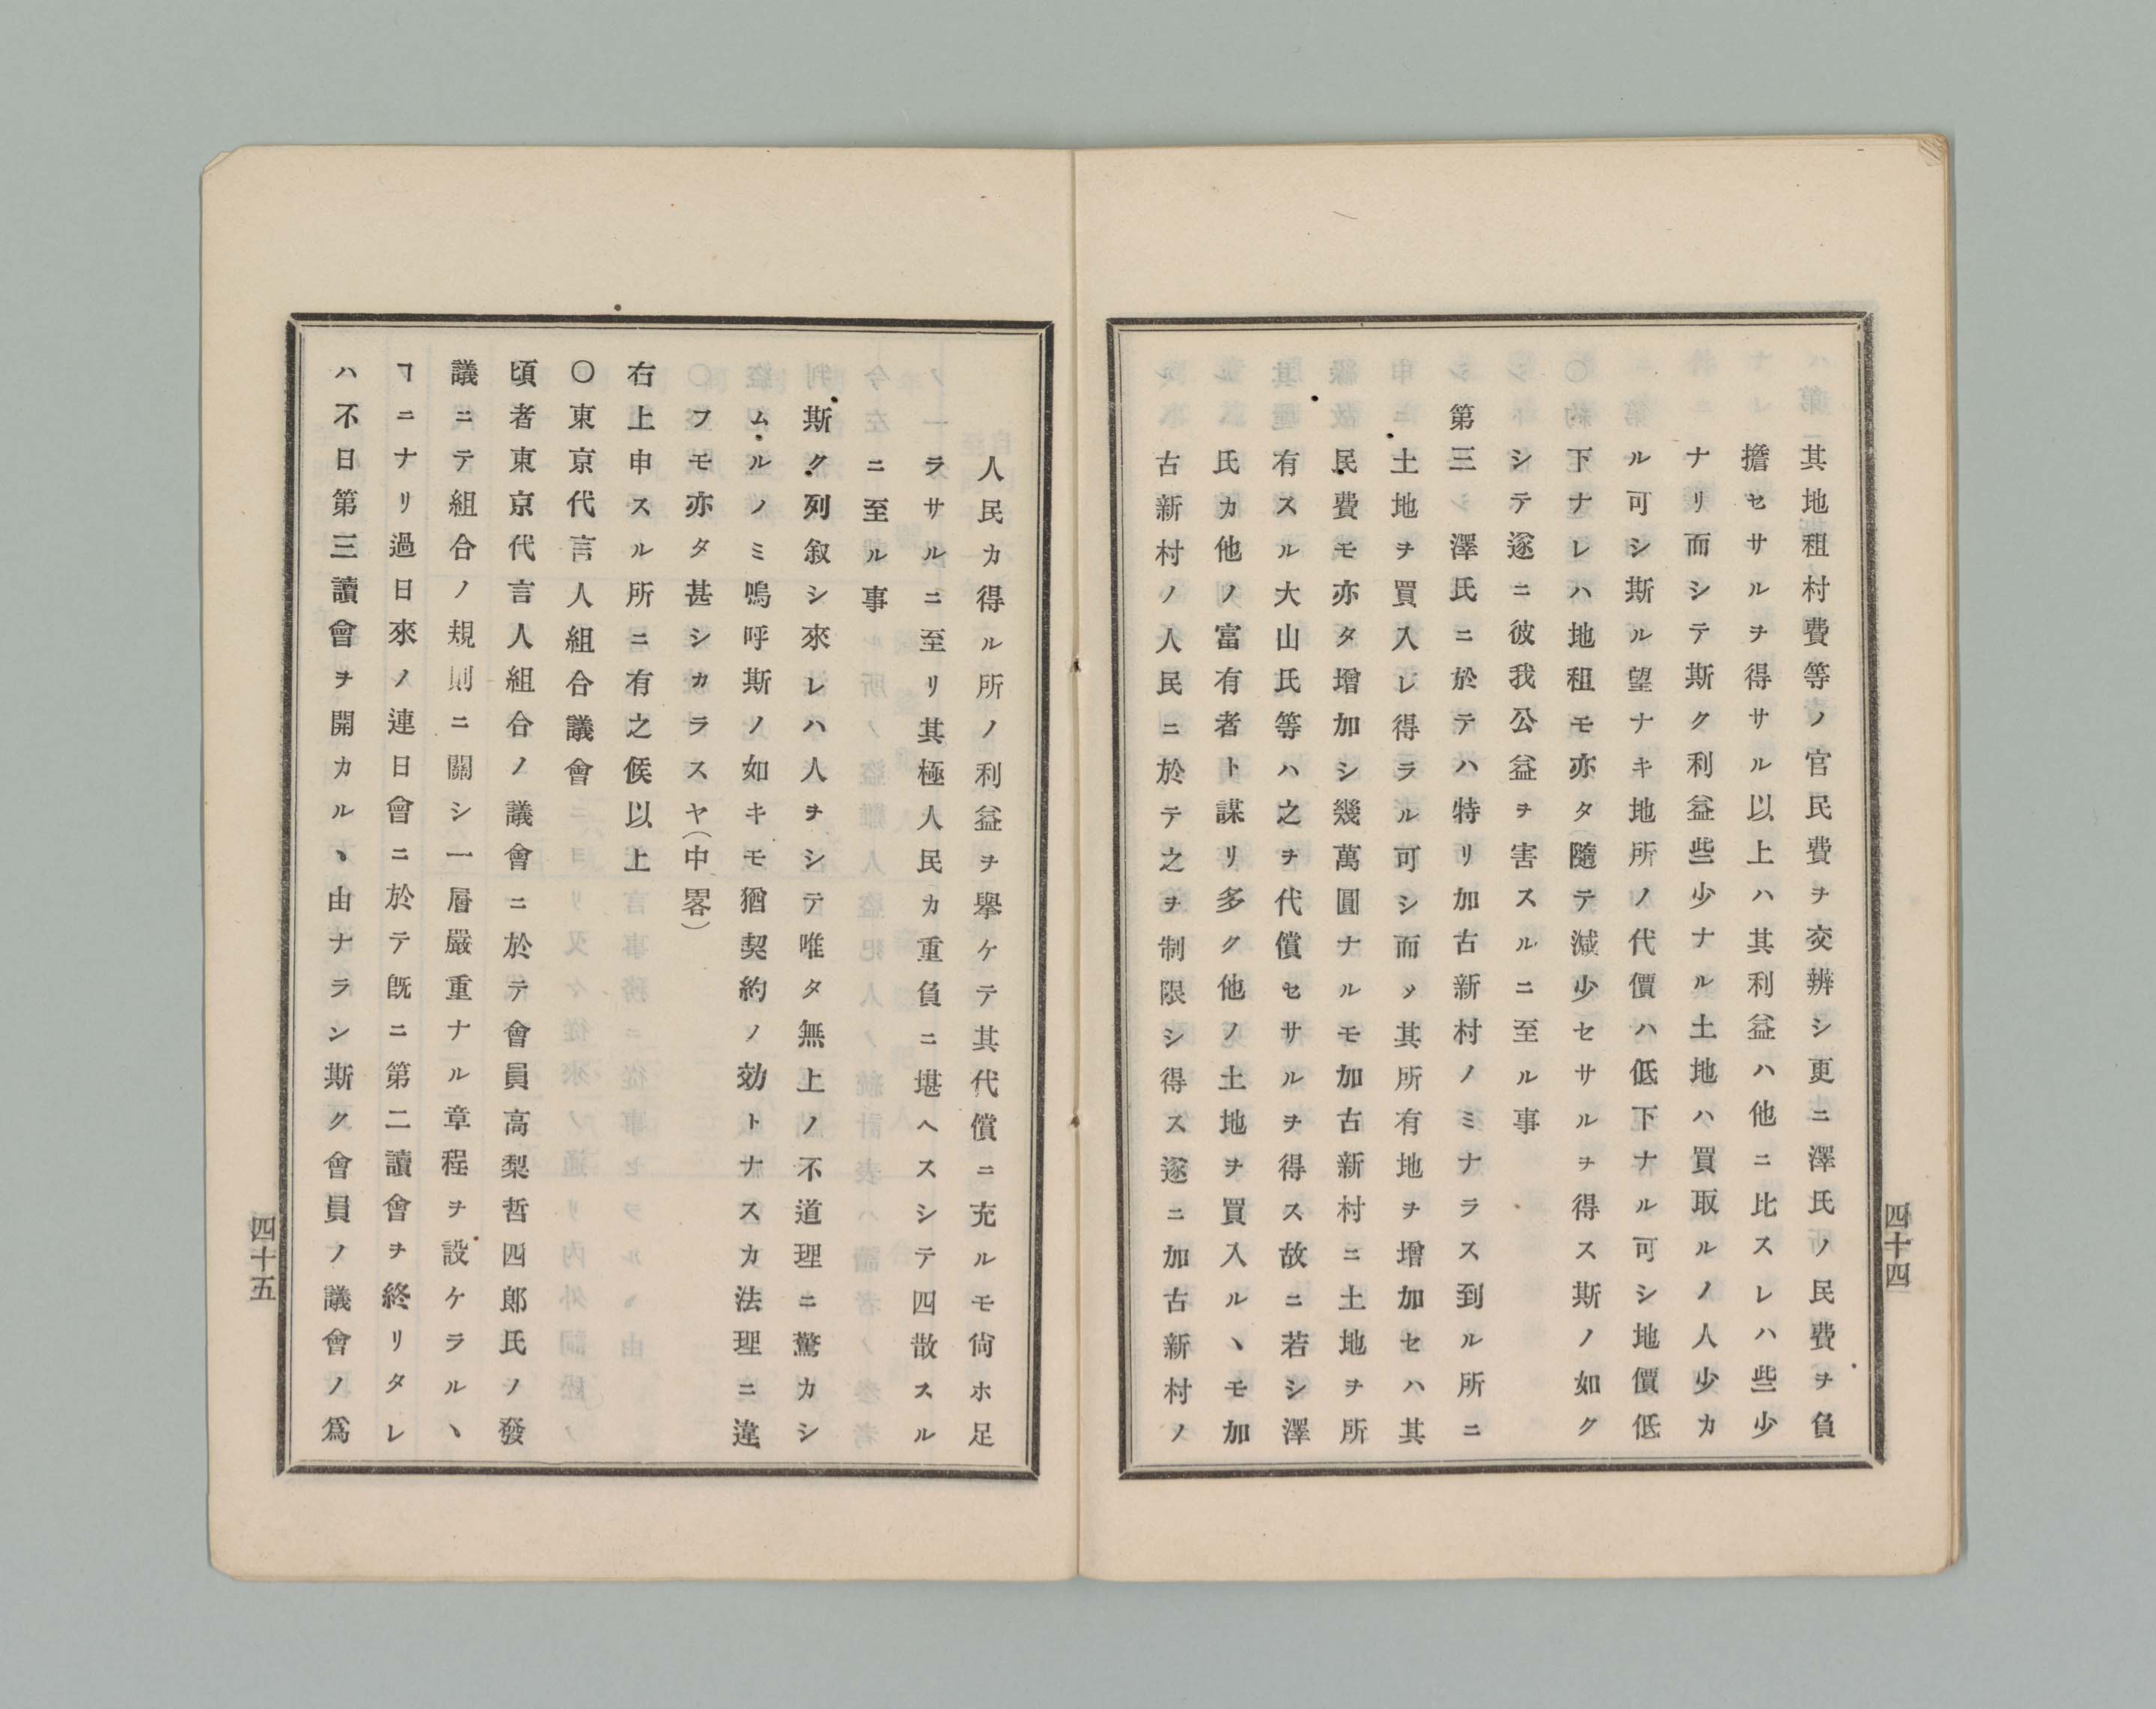 其地租村費等ノ官民費ヲ交辨シ更ニ澤氏ノ民費ヲ負
擔セサルヲ得サル以上ハ其利益ハ他ニ比スレハ些少
ナリ而シテ斯ク利益些少ナル土地ハ買取ルノ人少カ
ル可シ斯ル望ナキ地所ノ代價ハ低下ナル可シ地價低
下ナレハ地租モ亦タ(隨テ減少セサルヲ得ス斯ノ如ク
シテ遂ニ彼我公益ヲ害スルニ至ル事
第三 澤氏ニ於テハ特リ加古新村ノミナラス到ル所ニ
土地ヲ買入レ得ラル可シ而メ其所有地ヲ增加セハ其
民費モ亦タ增加シ幾萬圓ナルモ加古新村ニ土地ヲ所
有スル大山氏等ハ之ヲ代償セサルヲ得ス故ニ若シ澤
氏カ他ノ富有者ト謀リ多ク他ノ土地ヲ買入ルヽモ加
古新村ノ人民ニ於テ之ヲ制限シ得ス遂ニ加古新村ノ
四十四
人民カ得ル所ノ利益ヲ擧ケテ其代償ニ充ルモ尙ホ足
ラサルニ至リ其極人民カ重負ニ堪ヘスシテ四散スル
ニ至ル事
斯ク列叙シ來レハ人ヲシテ唯タ無上ノ不道理ニ驚カシ
ムルノミ嗚呼斯ノ如キモ猶契約ノ効トナスカ法理ニ違
フモ亦タ甚シカラスヤ(中畧)
右上申スル所ニ有之候以上
○東京代言人組合議會
頃者東京代言人組合ノ議會ニ於テ會員高梨哲四郎氏ノ發
議ニテ組合ノ規則ニ關シ一層嚴重ナル章程ヲ設ケラルヽ
ヿニナリ過日來ノ連日會ニ於テ旣ニ第二讀會ヲ終リタレ
ハ不日第三讀會ヲ開カルヽ由ナラン斯ク會員ノ議會ノ爲
四十五